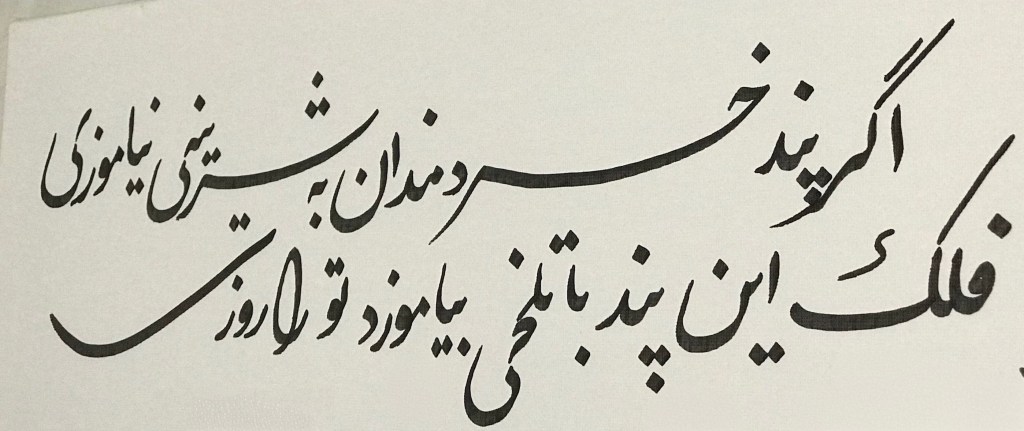 اگر پند خردمندان به شیرینی نیاموزی
فلک این پند با تلخی بیاموزد تو را روزی